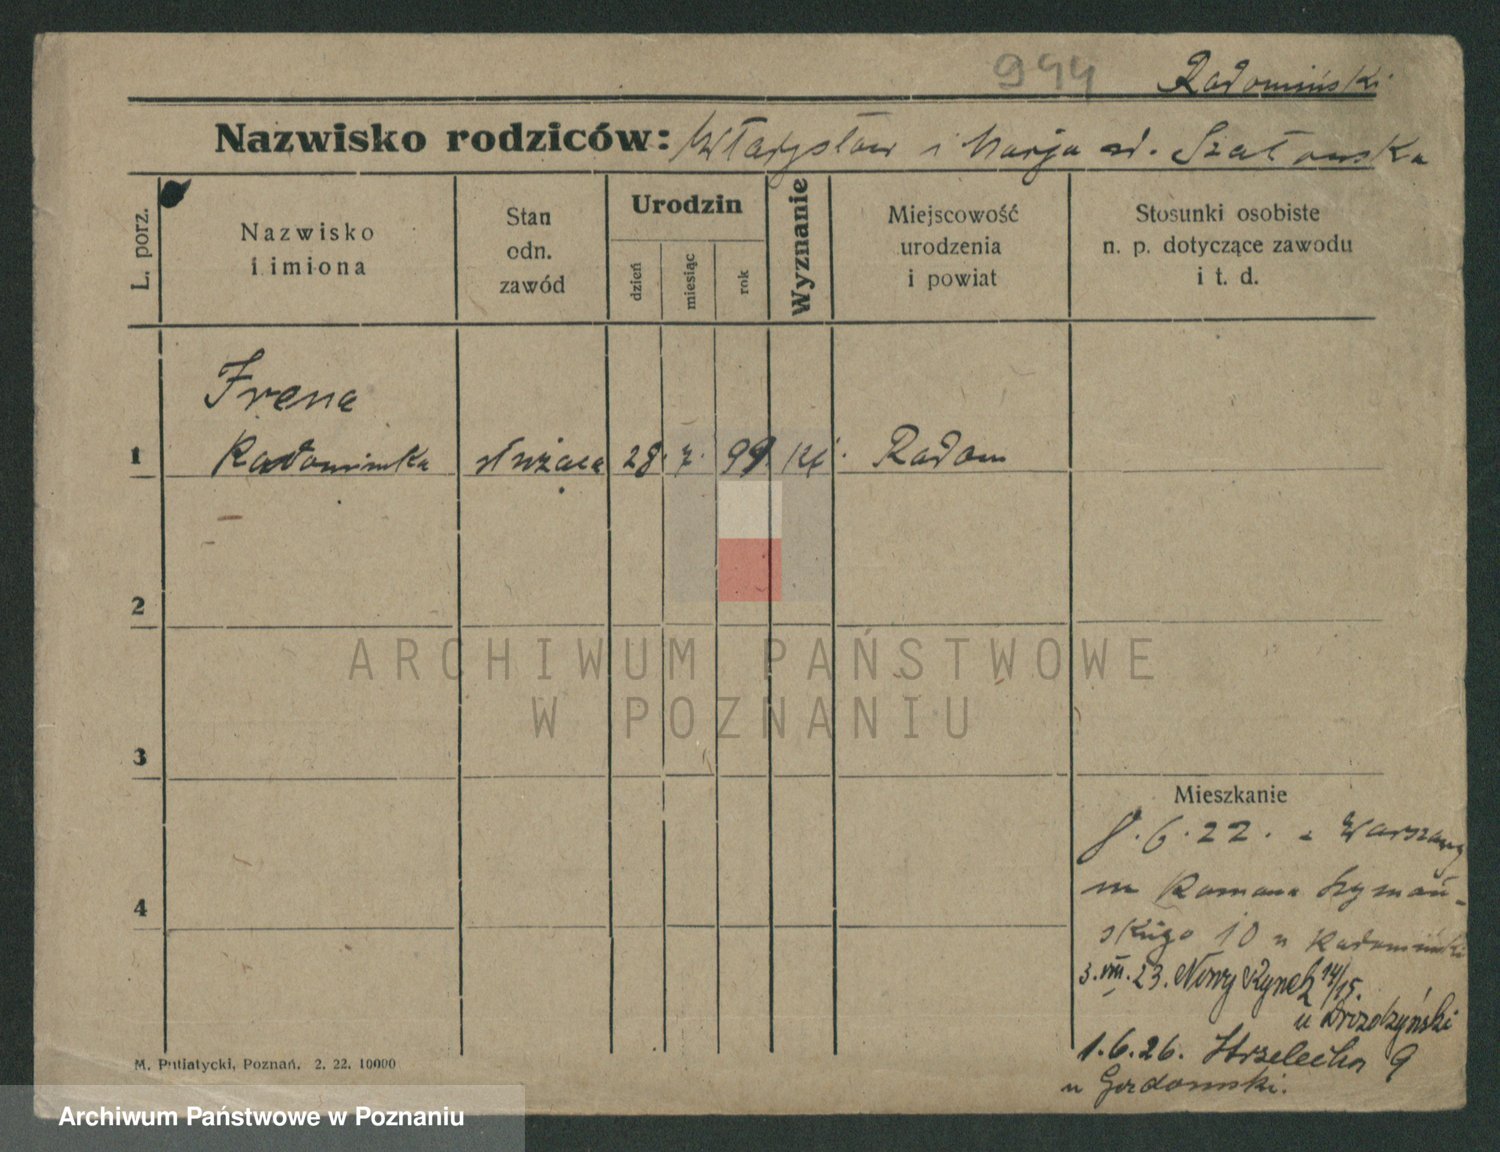 944 Radomiński
Nazwisko rodziców: Władysław i Marja z d. Szatowska
L. porz.
Nazwisko
i imiona
Stan
odn.
zawód
Urodzin
dzień
miesiąc
rok
Wyznanie
Miejscowość
urodzenia
i powiat
Stosunki osobiste
n. p. dotyczące zawodu
i t. d.
Irena
1 Radomińska służąca 28. 7. 99. kt. Radom
2
ARCHIWUM PAŃSTWOWE
W POZNANIU
3
Mieszkanie
8.6.22. z Warszawy
Romana Szymań-
skiego 10 u Radomiński
4
3.VIII.23. Nowy Rynek 14/15.
u Drożdżyński
1.6.26. Strzelecka 9
u Gordomski.
M. Putiatycki, Poznań. 2. 22. 10000
Archiwum Państwowe w Poznaniu